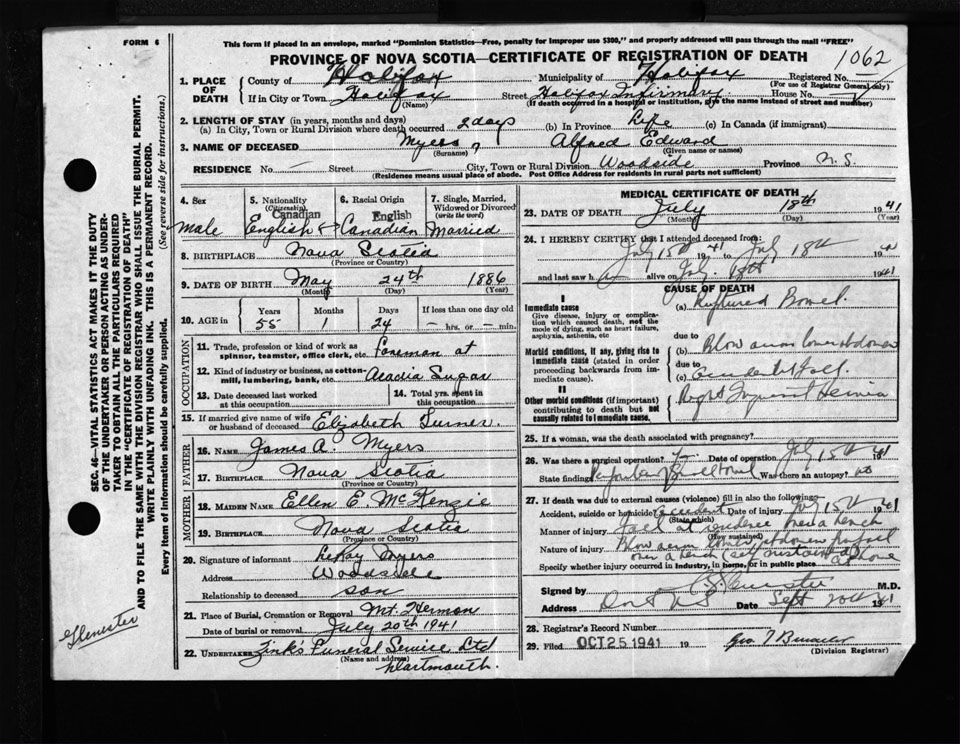 FORM 6
This form if placed in an envelope, marked "Dominion Statistics—Free, penalty for improper use $300," and properly addressed will pass through the mail "FREE"
PROVINCE OF NOVA SCOTIA—CERTIFICATE OF REGISTRATION OF DEATH
1062
1. PLACE OF DEATH
County of Halifax Municipality of Halifax Registered No.
(For use of Registrar General only)
If in City or Town Halifax Street Halifax Infirmary House No.
(Name) (If death occurred in a hospital or institution, give the name instead of street and number)
2. LENGTH OF STAY (in years, months and days)
(a) In City, Town or Rural Division where death occurred 2 days (b) In Province Life (c) In Canada (if immigrant)
3. NAME OF DECEASED Myers, Alfred Edward
(Surname) (Given name or names)
RESIDENCE No. — Street City, Town or Rural Division Woodside Province N.S.
(Residence means usual place of abode. Post Office Address for residents in rural parts not sufficient)
4. Sex
Male
5. Nationality
(Citizenship)
Canadian
English &
6. Racial Origin
English
Canadian
7. Single, Married, Widowed or Divorced
(write the word)
Married
8. BIRTHPLACE Nova Scotia
(Province or Country)
9. DATE OF BIRTH May 24th 1886
(Month) (Day) (Year)
10. AGE in Years Months Days If less than one day old
55 1 24 — hrs. or — min.
OCCUPATION
11. Trade, profession or kind of work as spinner, teamster, office clerk, etc. Foreman at
12. Kind of industry or business, as cotton-mill, lumbering, bank, etc. Acadia Sugar
13. Date deceased last worked at this occupation
14. Total yrs. spent in this occupation
15. If married give name of wife or husband of deceased Elizabeth Turner
FATHER
16. NAME James A. Myers
17. BIRTHPLACE Nova Scotia
(Province or Country)
MOTHER
18. MAIDEN NAME Ellen E. McKenzie
19. BIRTHPLACE Nova Scotia
(Province or Country)
20. Signature of informant Myers
Address Woodside
Relationship to deceased son
21. Place of Burial, Cremation or Removal Mt. Hermon
Date of burial or removal July 20th 1941
22. UNDERTAKER Zink's Funeral Service Ltd
(Name and address) Dartmouth.
MEDICAL CERTIFICATE OF DEATH
23. DATE OF DEATH July 18th 1941
(Month) (Day)
24. I HEREBY CERTIFY that I attended deceased from:
July 15th 1941 to July 18th 19
and last saw h alive on July 18th 1941
CAUSE OF DEATH
I
Immediate cause
Give disease, injury or complication which caused death, not the mode of dying, such as heart failure, asphyxia, asthenia, etc
(a) Ruptured Bowel.
due to
Morbid conditions, if any, giving rise to immediate cause (stated in order proceeding backwards from immediate cause).
(b) Blow lower abdomen
due to
(c) Accidental fall.
II
Other morbid conditions (if important) contributing to death but not causally related to immediate cause.
Right Inguinal Hernia
25. If a woman, was the death associated with pregnancy?
26. Was there a surgical operation? Date of operation July 15th 1941
State findings Was there an autopsy? no
27. If death was due to external causes (violence) fill in also the following:
Accident, suicide or homicide? Accident Date of injury July 15th 1941
(State which)
Manner of injury Fall at residence over a bench
(How sustained)
Nature of injury Blow lower abdomen
over a bench
Specify whether injury occurred in industry, in home, or in public place at home
Signed by M.D.
Address Dart N.S Date Sept 20th 1941
28. Registrar's Record Number
29. Filed OCT 25 1941 19
(Division Registrar)
SEC. 46—VITAL STATISTICS ACT MAKES IT THE DUTY
OF THE UNDERTAKER OR PERSON ACTING AS UNDER-
TAKER TO OBTAIN ALL THE PARTICULARS REQUIRED
IN THE "CERTIFICATE OF REGISTRATION OF DEATH"
AND TO FILE THE SAME WITH THE DIVISION REGISTRAR WHO SHALL ISSUE THE BURIAL PERMIT.
WRITE PLAINLY WITH UNFADING INK. THIS IS A PERMANENT RECORD.
Every item of information should be carefully supplied. (See reverse side for instructions.)
Glenister